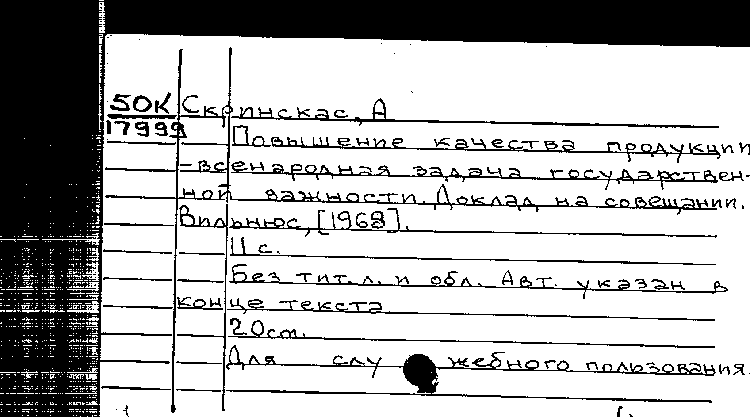 50К Скринскас, А
17999
Повышение качества продукции
-всенародная задача государствен-
ной важности. Доклад на совещании.
Вильнюс, [1968].
11 с.
Без тит. л. и обл. Авт. указан в
конце текста
20см.
Для служебного пользования.